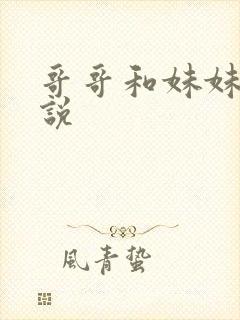 哥哥和妹妹
說
風青蟄